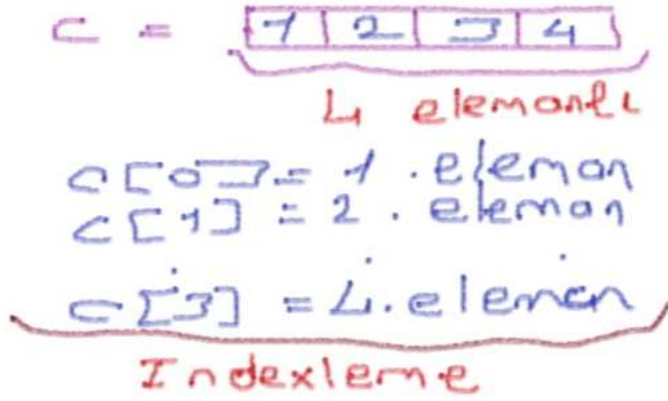 c = 1 2 3 4
4 elemanlı
c[0] = 1. eleman
c[1] = 2. eleman
c[3] = 4. eleman
Indexleme